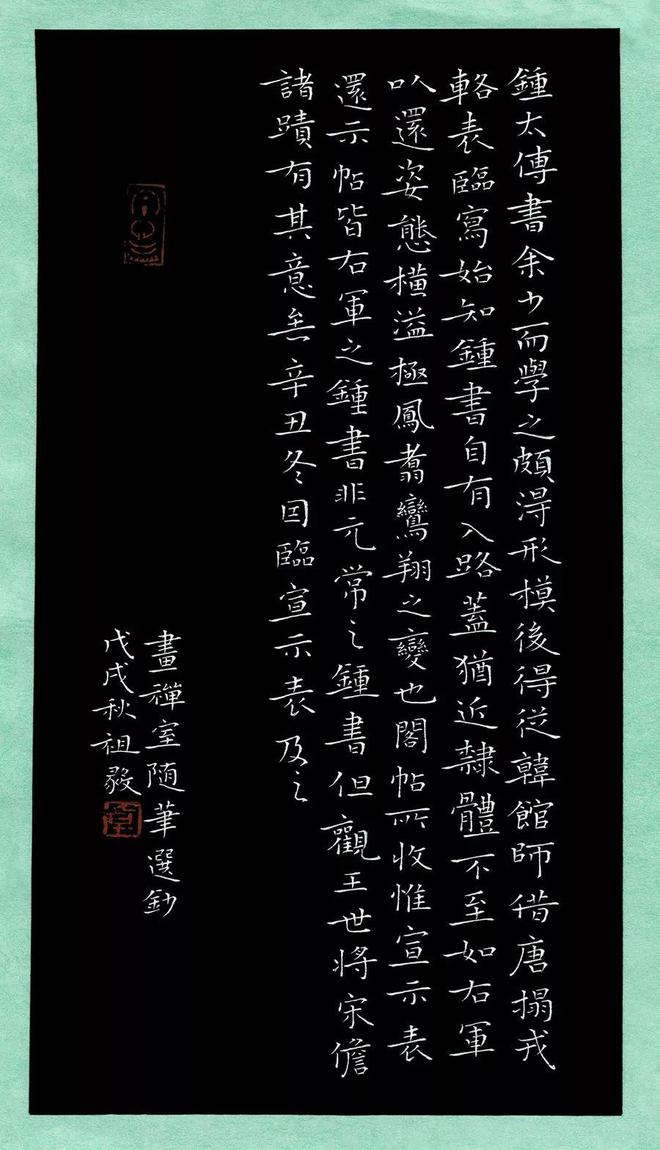 鍾太傅書余少而學之頗淂形模後得從韓館師借唐搨戎
輅表臨寫始知鍾書自有入路蓋猶近隸體不至如右軍
以還姿態横溢極鳳翥鸞翔之變也閣帖所收惟宣示表
還示帖皆右軍之鍾書非元常之鍾書但觀王世將宋儋
諸蹟有其意矣辛丑冬因臨宣示表及之
畫禪室随筆選鈔
戊戌秋祖毅